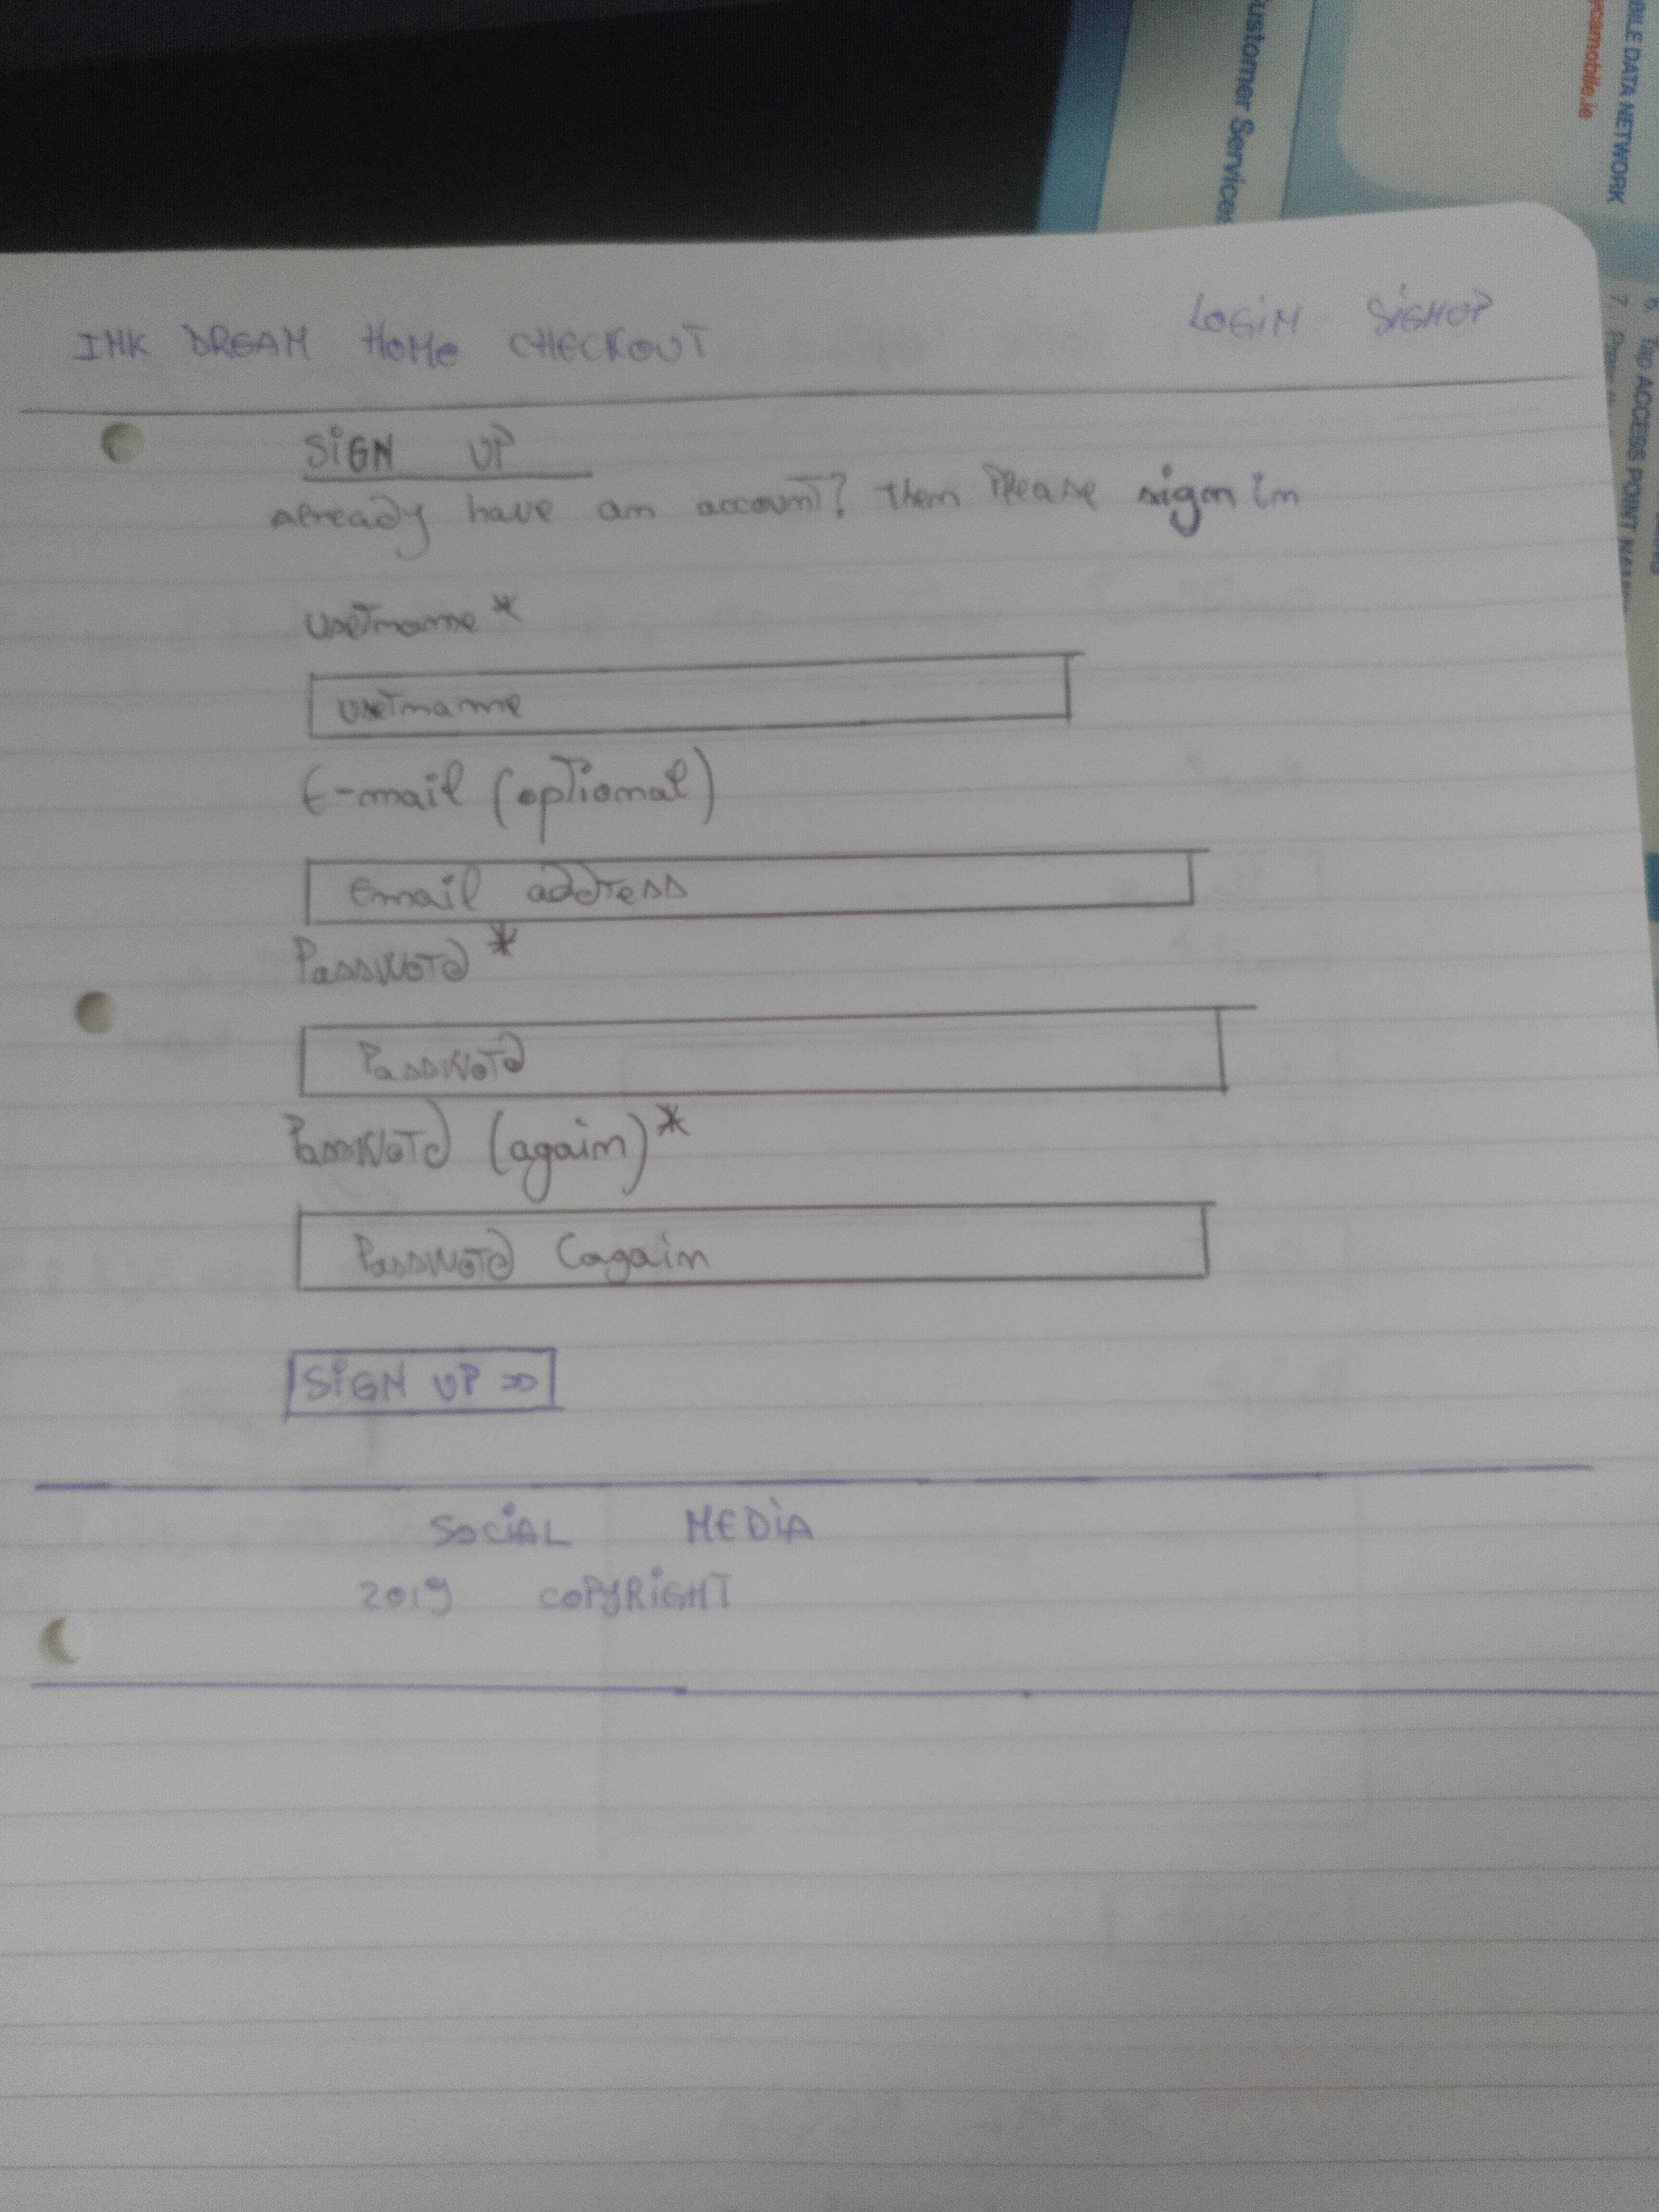 ustomer Services
BILE DATA NETWORK
ycamobile.ie
6. Tap ACCESS POINT
7.
INK DREAM HOME CHECKOUT LOGIN SIGNUP
SIGN UP
already have an account? then Please sign in
username *
username
E-mail (optional)
Email address
Password *
Password
Password (again) *
Password (again
SIGN UP >>
SOCIAL MEDIA
2019 COPYRIGHT